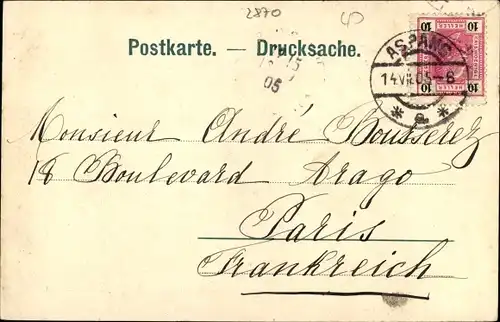 2870
Postkarte. — Drucksache.
10 HELLER 10
ASPANG
14.VII.05-6
* a *
05
Monsieur André Bousserez
18 Boulevard Arago
Paris
Frankreich